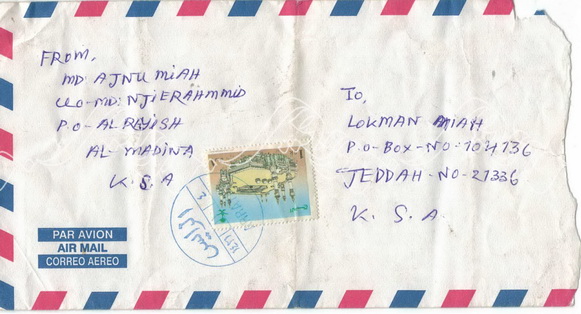 FROM,
MD: AJNU MIAH
C/O-MD: NJIERAHMMID
P.O-AL RAYISH
AL-MADINA
K.S.A
To,
LOKMAN MIAH
P.O-BOX-NO-104736
JEDDAH-NO-21336
K. S. A
PAR AVION
AIR MAIL
CORREO AEREO